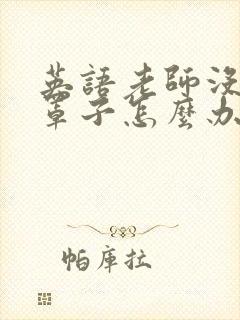 英語老師沒
罩子怎麼办
帕庫拉